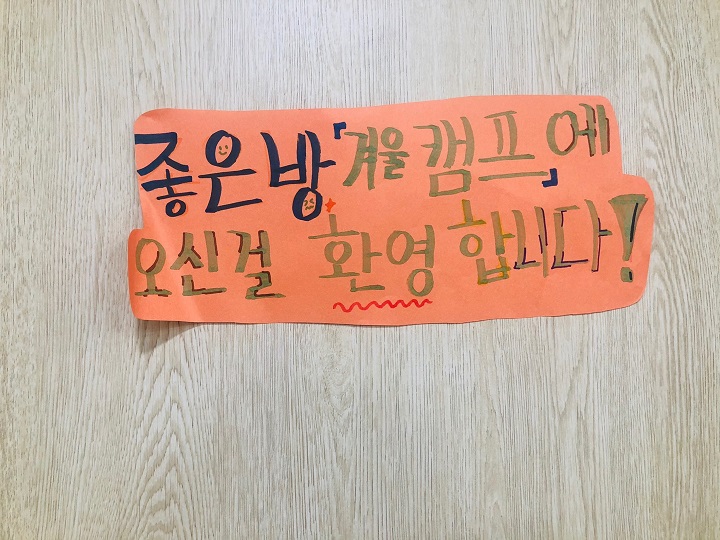 좋은방 「겨울캠프」에
오신걸 환영합니다!